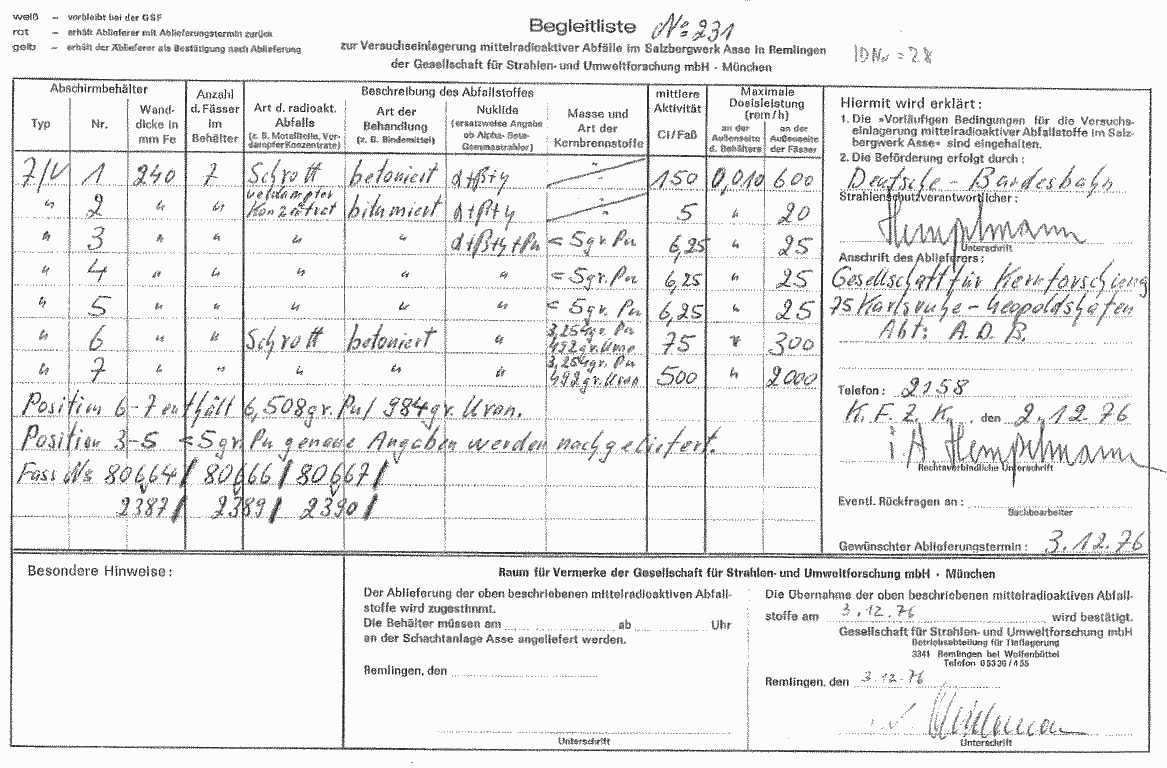 weiß – verbleibt bei der GSF
rot – erhält Ablieferer mit Ablieferungstermin zurück
gelb – erhält der Ablieferer als Bestätigung nach Ablieferung
Begleitliste No 231
zur Versuchseinlagerung mittelradioaktiver Abfälle im Salzbergwerk Asse in Remlingen
der Gesellschaft für Strahlen- und Umweltforschung mbH · München
IDNr = 28
Abschirmbehälter
Typ
Nr.
Wand-
dicke in
mm Fe
Anzahl
d. Fässer
im
Behälter
Beschreibung des Abfallstoffes
Art d. radioakt.
Abfalls
(z. B. Metallteile, Ver-
dampfer Konzentrate)
Art der
Behandlung
(z. B. Bindemittel)
Nuklide
(ersatzweise Angabe
ob Alpha- Beta-
Gammastrahler)
Masse und
Art der
Kernbrennstoffe
mittlere
Aktivität
Ci/Faß
Maximale
Dosisleistung
(rem/h)
an der
Außenseite
d. Behälters
an der
Außenseite
der Fässer
7/V 1 240 7 Schrott betoniert α+β+γ 150 0,010 600
" 2 " " Verdampfer Konzentrat bitumiert α+β+γ 5 " 20
" 3 " " " " α+β+γ+Pu < 5gr. Pu 6,25 " 25
" 4 " " " " " < 5gr. Pu 6,25 " 25
" 5 " " " " " < 5gr. Pu 6,25 " 25
" 6 " " Schrott betoniert " 3,254gr. Pu 492gr. Uran 75 " 300
" 7 " " " " " 3,254gr. Pu 492gr. Uran 500 " 2000
Position 6-7 enthält 6,508gr. Pu/ 984gr. Uran.
Position 3-5 < 5gr. Pu genaue Angaben werden nachgeliefert.
Fass No 80664/ 80666/ 80667/
2387/ 2389/ 2390/
Hiermit wird erklärt:
1. Die »Vorläufigen Bedingungen für die Versuchs-
einlagerung mittelradioaktiver Abfallstoffe im Salz-
bergwerk Asse« sind eingehalten.
2. Die Beförderung erfolgt durch:
Deutsche-Bundesbahn
Strahlenschutzverantwortlicher:
Hempelmann
Unterschrift
Anschrift des Ablieferers:
Gesellschaft für Kernforschung
75 Karlsruhe-Leopoldshafen
Abt: A.D.B.
Telefon: 2158
K.F.Z.K., den 2.12.76
i.A. Hempelmann
Rechtsverbindliche Unterschrift
Eventl. Rückfragen an:
Sachbearbeiter
Gewünschter Ablieferungstermin: 3.12.76
Besondere Hinweise:
Raum für Vermerke der Gesellschaft für Strahlen- und Umweltforschung mbH · München
Der Ablieferung der oben beschriebenen mittelradioaktiven Abfall-
stoffe wird zugestimmt.
Die Behälter müssen am ab Uhr
an der Schachtanlage Asse angeliefert werden.
Remlingen, den
Unterschrift
Die Übernahme der oben beschriebenen mittelradioaktiven Abfall-
stoffe am 3.12.76 wird bestätigt.
Gesellschaft für Strahlen- und Umweltforschung mbH
Betriebsabteilung für Tieflagerung
3341 Remlingen bei Wolfenbüttel
Telefon 05336/455
Remlingen, den 3.12.76
Unterschrift